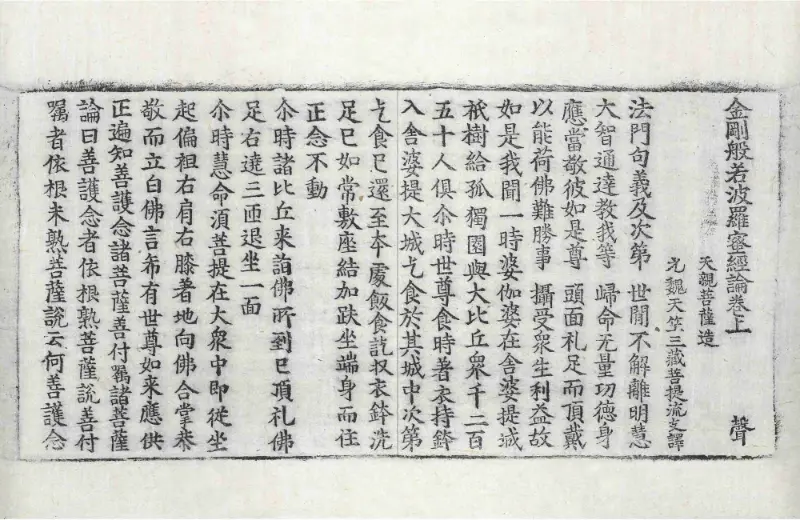 金剛般若波羅蜜經論卷上 聲
天親菩薩造
元魏天竺三藏菩提流支譯
法門句義及次第 世閒不解離明慧
大智通達教我等 歸命无量功德身
應當敬彼如是尊 頭面礼足而頂戴
以能荷佛難勝事 攝受衆生利益故
如是我聞一時婆伽婆在舍婆提城
祇樹給孤獨園與大比丘衆千二百
五十人俱尒時世尊食時著衣持鉢
入舍婆提大城乞食於其城中次第
乞食已還至本處飯食訖收衣鉢洗
足已如常敷座結加趺坐端身而住
正念不動
尒時諸比丘来詣佛所到已頂礼佛
足右遶三匝退坐一面
尒時慧命湏菩提在大衆中即從坐
起偏袒右肩右膝著地向佛合掌恭
敬而立白佛言希有世尊如来應供
正遍知善護念諸菩薩善付囑諸菩薩
論曰善護念者依根熟菩薩說善付
囑者依根未熟菩薩說云何善護念